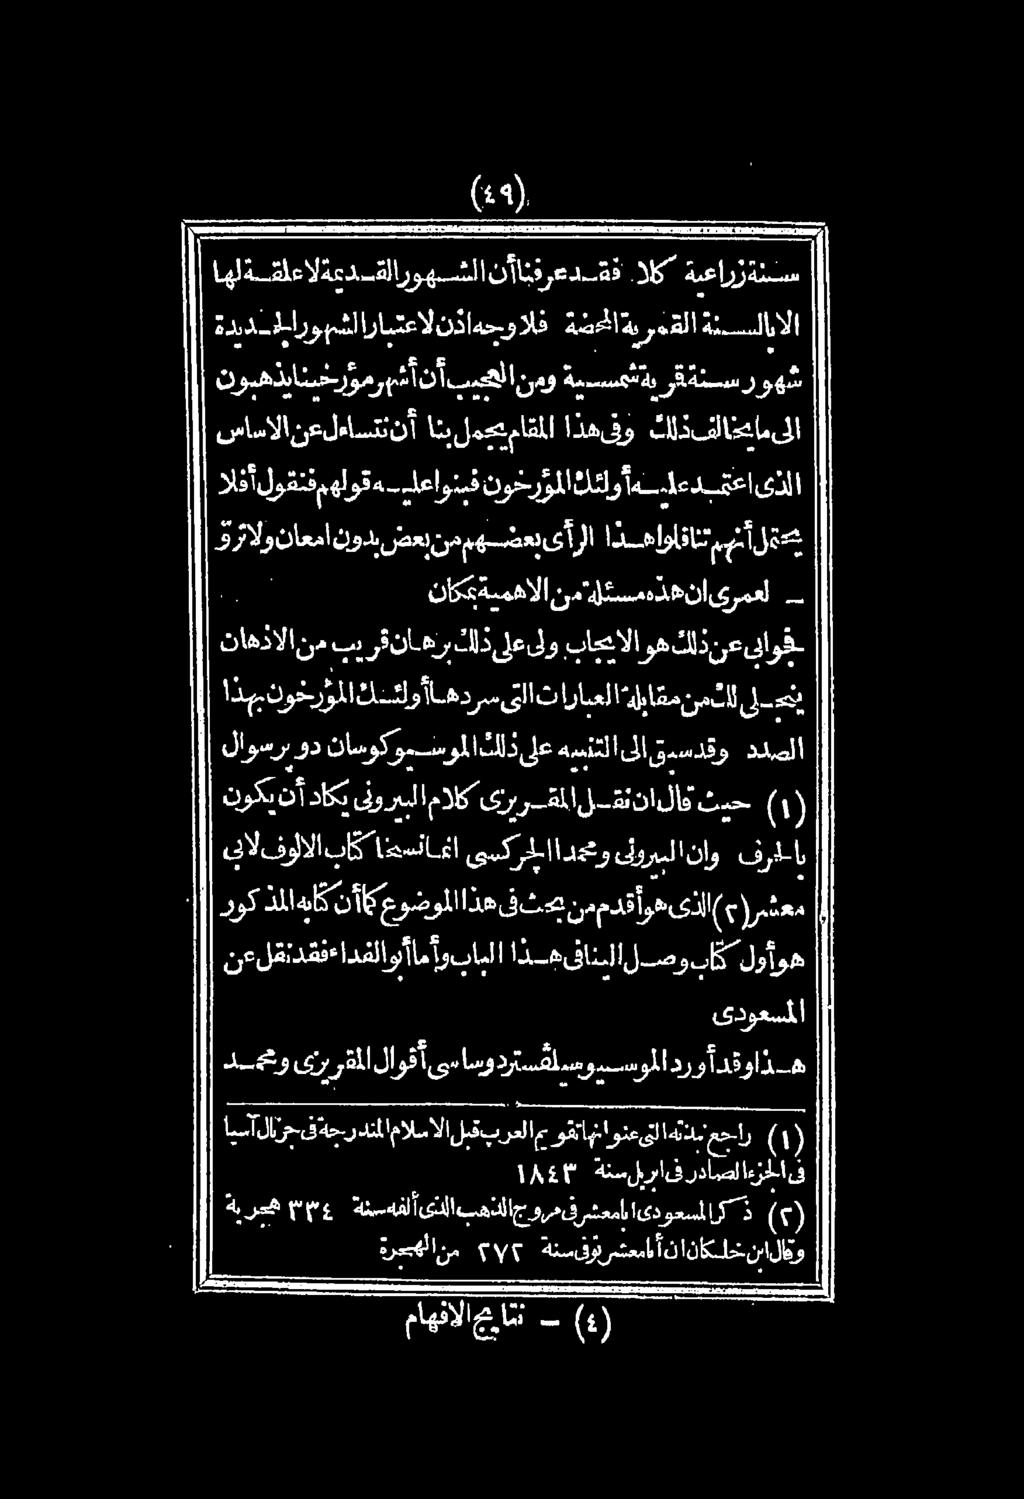 (٤٩)
سنة زراعية كلا. فقد عرفنا أن الشهور القديمة لا علقة لها
الا بالسنة القمرية المحضة فلا وجه اذن لاعتبار الشهور الجديدة
شهور سنة قمرية شمسية ومن العجيب أن أشهر مؤرخينا يذهبون
الى ما يخالف ذلك وفى هذا المقام يجمل بنا أن نتساءل عن الاساس
الذى اعتمد عليه أولئك المؤرخون فبنوا عليه قولهم فنقول أفلا
يحتمل أنهم تناقلوا هذا الرأى بعضهم من بعض بدون امعان ولا ترو
ـ لعمرى ان هذه مسئلة من الاهمية بمكان
فجوابى عن ذلك هو الايجاب ولى على ذلك برهان قريب من الاذهان
ينجلى لك من مقابلة العبارات التى سردها أولئك المؤرخون بهذا
الصدد وقد سبق الى التنبيه على ذلك الموسيو كوسان دو برسوال
(١) حيث قال ان نقل المقريزى كلام البيرونى يكاد أن يكون
بالحرف وان البيرونى ومحمدا الچركسى انما نسخا كتاب الالوف لابى
معشر (٢) الذى هو أقدم من بحث فى هذا الموضوع كما أن كتابه المذكور
هو أول كتاب وصل الينا فى هذا الباب وأما أبو الفداء فقد نقل عن
المسعودى
هذا وقد أورد الموسيو سيلڤستر دوساسى أقوال المقريزى ومحمد
(١) راجع نبذته التى عنوانها تقويم العرب قبل الاسلام المندرجة فى جرنال آسيا
فى الجزء الصادر فى ابريل سنة ١٨٤٣
(٢) ذكر المسعودى ابا معشر فى مروج الذهب الذى ألفه سنة ٣٣٤ هجرية
وقال ابن خلكان ان أبا معشر توفى سنة ٢٧٢ من الهجرة
(٤) ـ نتايج الافهام